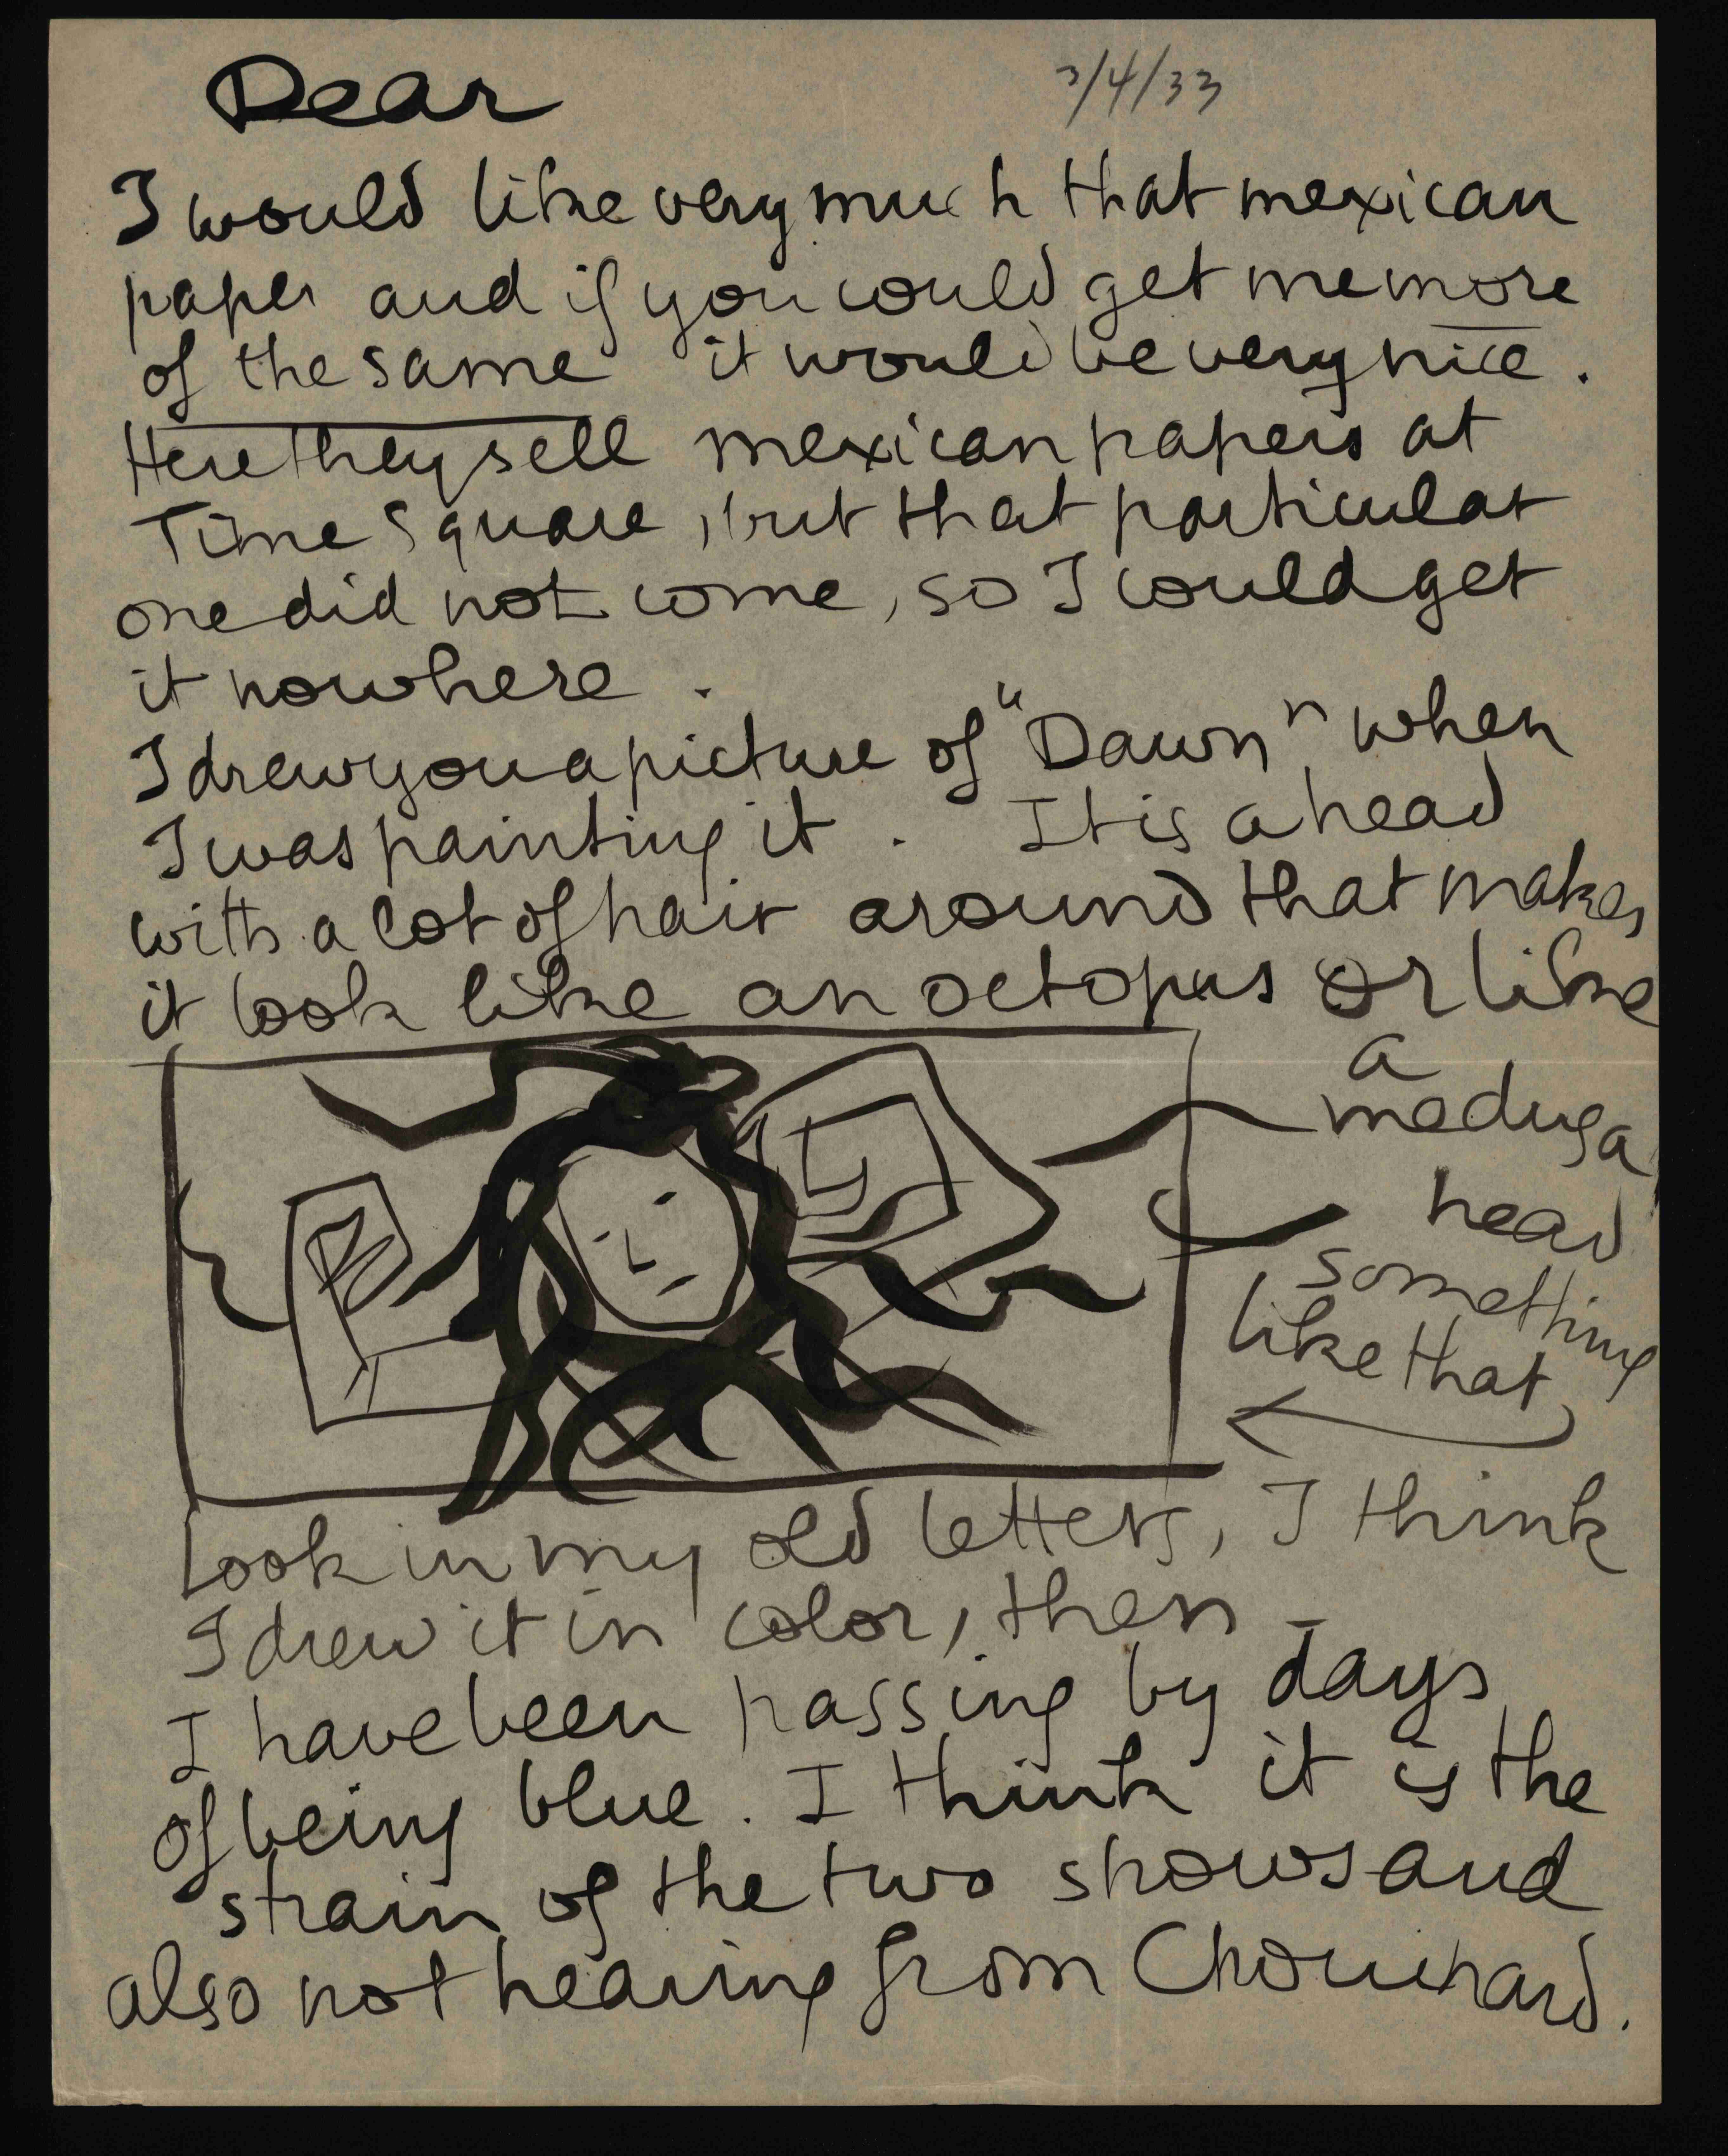 Dear
3/4/33
I would like very much that mexican
paper and if you could get me more
of the same it would be very nice.
Here they sell mexican papers at
Time Square, but that particular
one did not come, so I could get
it nowhere.
I drew you a picture of "Dawn" when
I was painting it. It is a head
with a lot of hair around that makes
it look like an octopus or like
a
medusa
head
something
like that
Look in my old letters, I think
I drew it in color, then -
I have been passing by days
of being blue. I think it is the
strain of the two shows and
also not hearing from Chouinard.